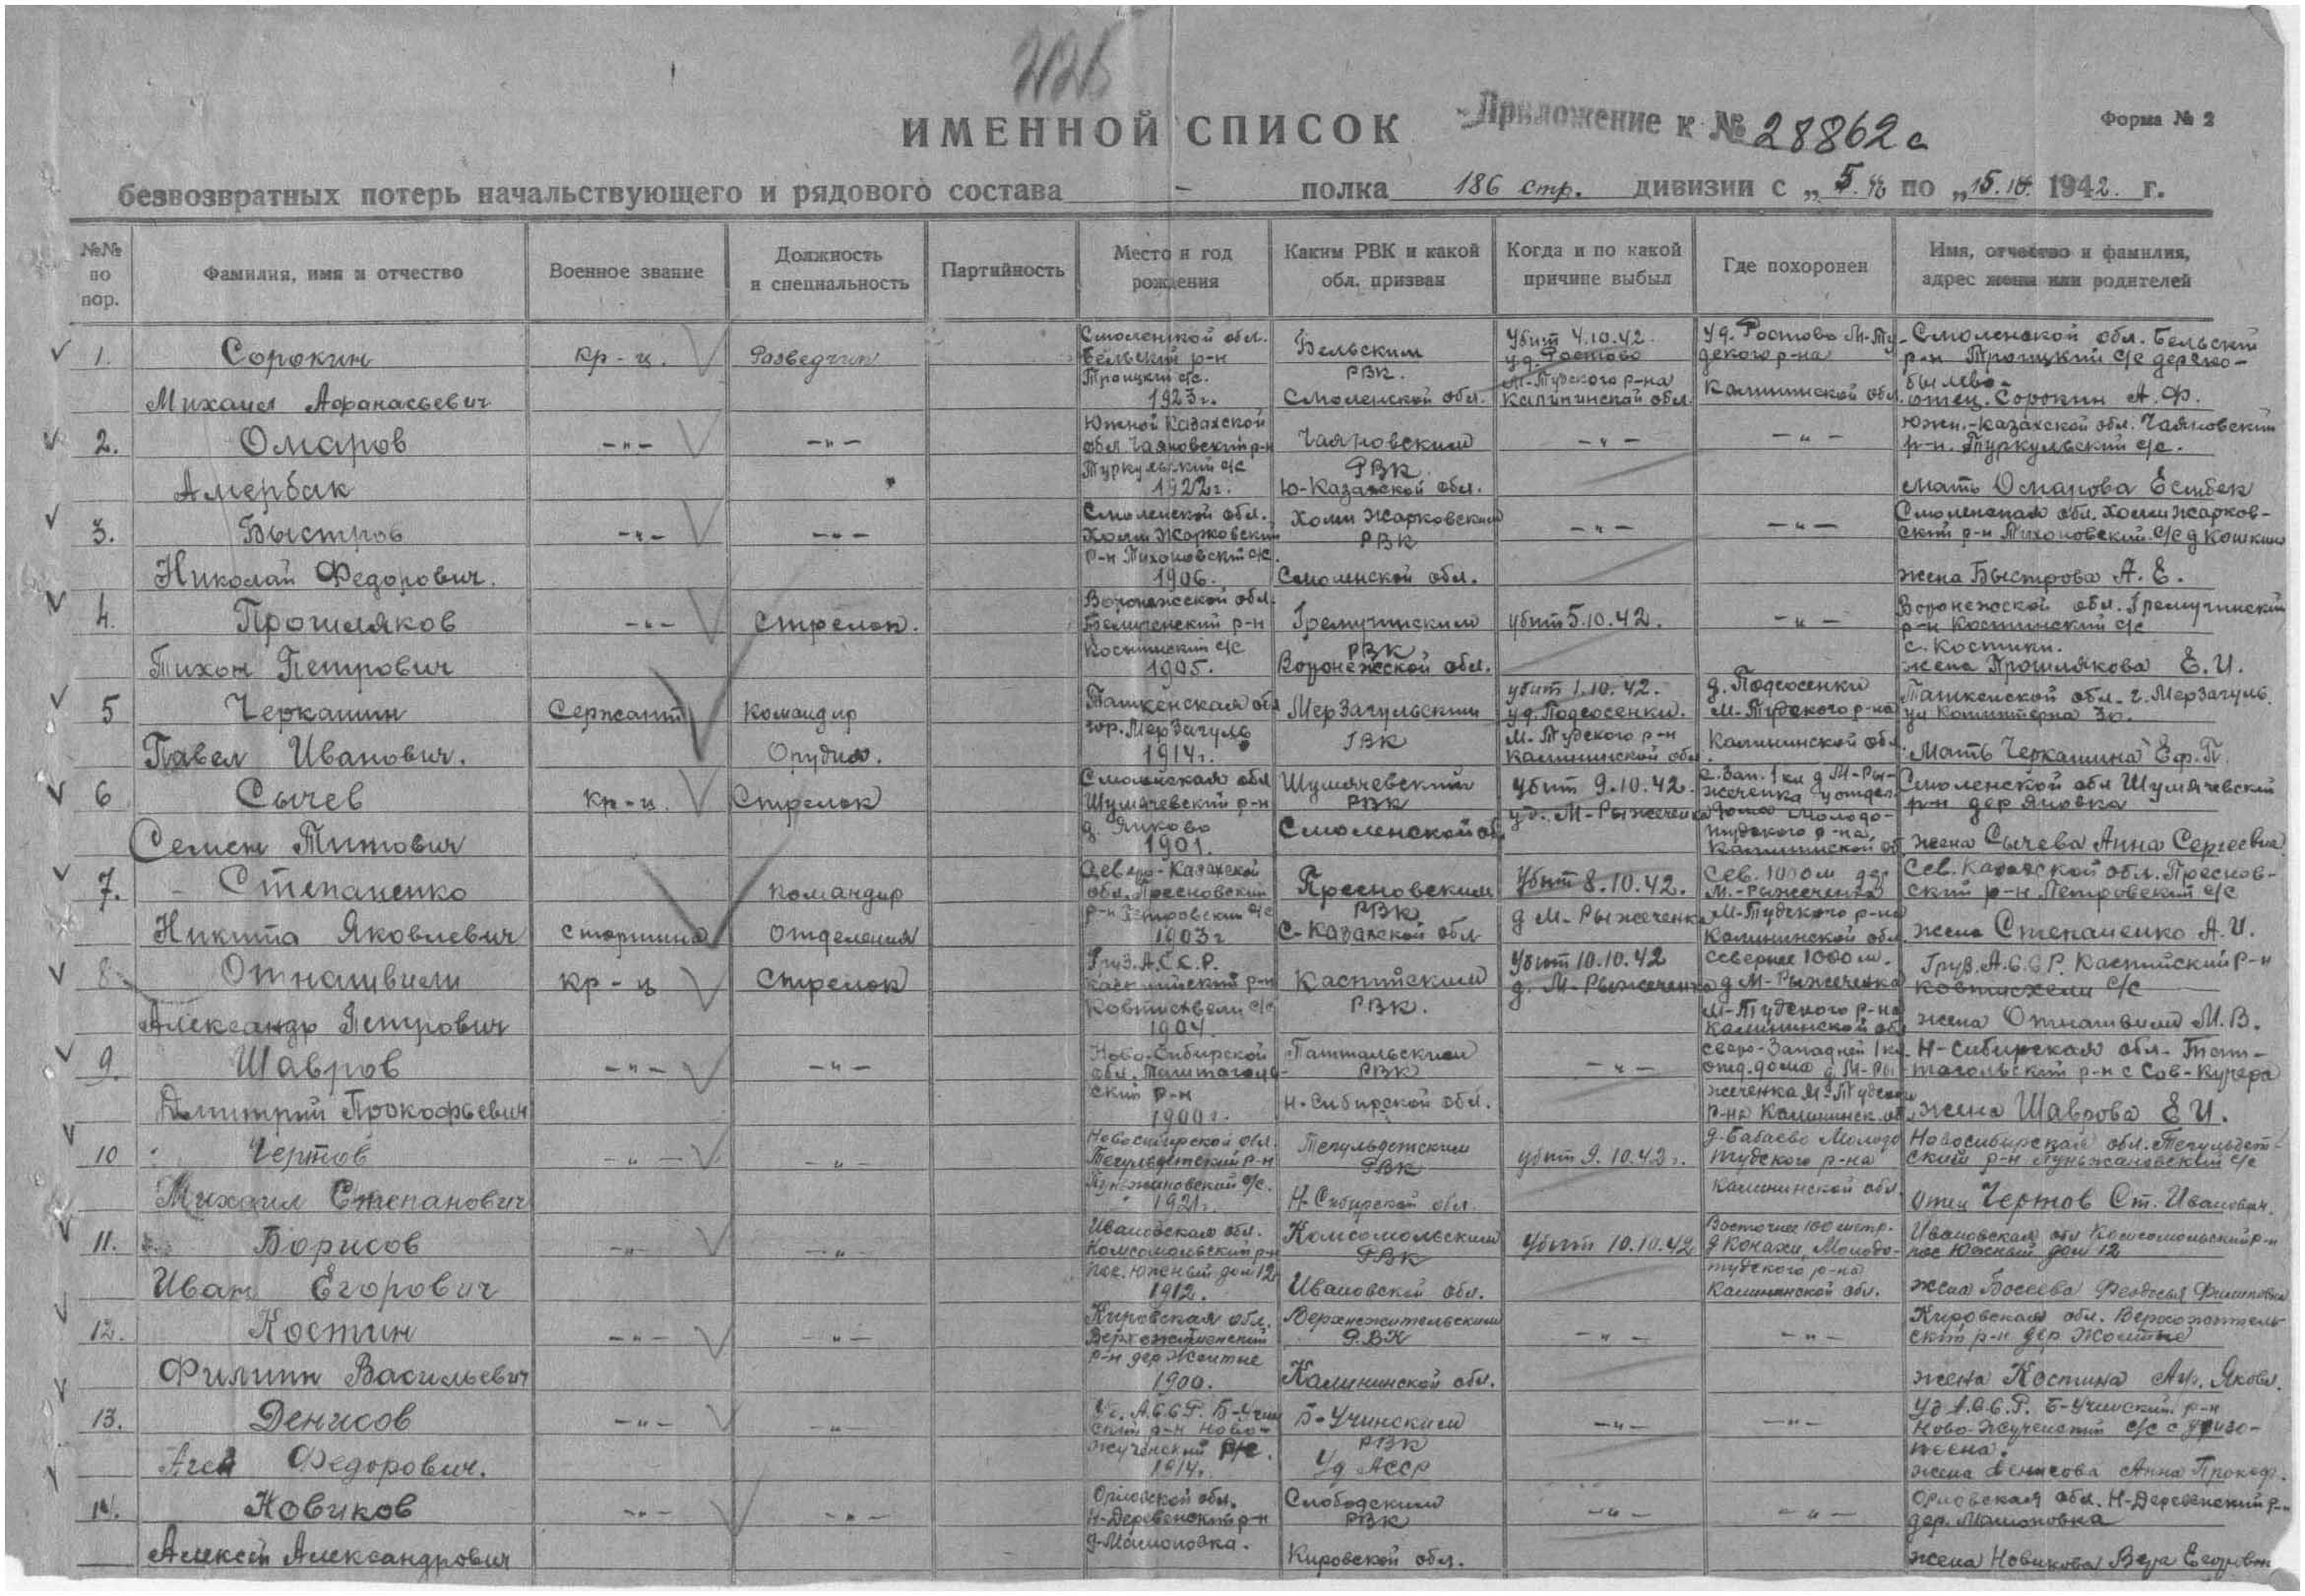 226
ИМЕННОЙ СПИСОК
Приложение к № 28862с
Форма № 2
безвозвратных потерь начальствующего и рядового состава - полка 186 стр. дивизии с „5. по „15. 1942. г.
№№ по пор.
Фамилия, имя и отчество
Военное звание
Должность и специальность
Партийность
Место и год рождения
Каким РВК и какой обл. призван
Когда и по какой причине выбыл
Где похоронен
Имя, отчество и фамилия, адрес жены или родителей
1.
Сорокин
Михаил Афанасьевич
кр-ц.
Разведчик
Смоленской обл.
Бельский р-н
Троицкий с/с.
1923г.
Бельским
РВК.
Смоленской обл.
Убит 4.10.42.
у д. Ростово
М-Тудского р-на
Калининской обл.
У д. Ростово М-Ту
дского р-на
Калининской обл.
Смоленской обл. Бельский
р-н Троицкий с/с дер. Ко-
былево-
отец. Сорокин А.Ф.
2.
Омаров
Амербак
-"-
-"-
Южной Казахской
обл. Чаяновский р-н
Туркульский с/с
1922г.
Чаяновским
РВК.
Ю-Казахской обл.
-"-
-"-
Южн.-Казахской обл. Чаяновский
р-н. Туркульский с/с.
мать Омарова Есибек
3.
Быстров
Николай Федорович.
-"-
-"-
Смоленской обл.
Холм Жарковский
р-н Тихоновский с/с.
1906.
Холм Жарковским
РВК
Смоленской обл.
-"-
-"-
Смоленская обл. Холм Жарков-
ский р-н Тихоновский с/с д Кошкино
жена Быстрова А.Е.
4.
Прошляков
Тихон Петрович
-"-
Стрелок.
Воронежской обл.
р-н
Костинский с/с
1905.
Гремучинским
РВК
Воронежской обл.
убит 5.10.42.
-"-
Воронежской обл. Гремучинский
р-н Костинский с/с
с. Костики.
жена Прошлякова Е.И.
5
Черкашин
Павел Иванович.
Сержант
Командир
Орудия.
Ташкенская обл
гор. Мерзагуль
1914г.
Мерзагульским
ГВК
убит 1.10.42.
у д. Подсосенки.
М-Тудского р-н
Калининской обл
д. Подсосенки
М-Тудского р-на
Калининской обл.
Ташкенской обл. г. Мерзагуль.
ул Коминтерна 30.
Мать Черкашина Еф.П.
6
Сычев
Семен Титович
кр-ц.
Стрелок
Смоленская обл
Шумячевский р-н
д. Янково
1901.
Шумячевский
РВК
Смоленской об
Убит 9.10.42.
у д. М-Рыжеченка
с. Зап. 1 км д М-Ры-
жеченка у отдел.
дома Молодо-
тудского р-на
Калининской об
Смоленской обл Шумячевский
р-н дер Яновка
жена Сычева Анна Сергеевна
7.
Степаненко
Никита Яковлевич
старшина
командир
отделения
Северо-Казахской
обл. Пресновский
р-н Петровский с/с
1903г
Пресновским
РВК
С-Казахской обл
Убит 8.10.42.
д М-Рыжеченка
Сев. 1000 м дер
М.-Рыжеченка
М-Тудского р-на
Калининской обл
Сев. Казахской обл. Преснов-
ский р-н Петровский с/с
жена Степаненко А.И.
8
Отиашвили
Александр Петрович
кр-ц
Стрелок
Груз. А.С.С.Р.
Каспийский р-н
с/с
1904.
Каспийским
РВК.
Убит 10.10.42
д. М-Рыжеченка
Севернее 1000 м.
д М-Рыжеченка
М-Тудского р-на
Калининской об
Груз. А.С.С.Р. Каспийский р-н
с/с
жена Отиашвили М.В.
9.
Шавров
Дмитрий Прокофьевич
-"-
-"-
Ново-Сибирской
обл. Таштаголь-
ский р-н
1900г.
РВК
Н-Сибирской обл.
-"-
Северо-Западней 1 км.
отд. дома д. М-Ры-
жеченка М-Тудского
р-на Калининск. об.
Н-Сибирская обл. Таш-
тагольский р-н с Сов-Кучера
жена Шаврова Е.И.
10
Чертов
Михаил Степанович
-"-
-"-
Новосибирской обл.
Тегульдетский р-н
с/с.
1921г.
Тегульдетским
РВК
Н-Сибирской обл.
убит 9.10.42г.
д. Бабаево Молодо
тудского р-на
Калининской обл.
Новосибирская обл. Тегульдет-
ский р-н с/с
отец Чертов Ст. Иванович.
11.
Борисов
Иван Егорович
-"-
-"-
Ивановская обл.
Комсомольский р-н
пос. Южный дом 12
1912.
Комсомольским
РВК
Ивановской обл.
Убит 10.10.42
Восточнее 100 метр.
д Конахи, Молодо-
тудского р-на
Калининской обл.
Ивановская обл Комсомольский р-н
пос Южный дом 12
жена Феодосья Филиповна
12.
Костин
Филипп Васильевич
-"-
-"-
Кировская обл.
Верхожитьенский
р-н дер Жоитые
1900.
Верхнежительским
Р.В.К
Калининской обл.
-"-
-"-
Кировская обл. Верхожитель-
ский р-н дер Жоитые
жена Костина Яковл.
13.
Денисов
Агей Федорович.
-"-
-"-
Уд. А.С.С.Р. Б-Учин
ский р-н Ново-
с/с.
1914г.
Б-Учинским
РВК
Уд АССР
-"-
-"-
Уд А.С.С.Р. Б-Учинский р-н
с/с с
жена Денисова Анна Прокоф.
14.
Новиков
Алексей Александрович
-"-
-"-
Орловской обл.
Н-Деревенский р-н
д-Мамоновка.
Слободским
РВК
Кировской обл.
-"-
-"-
Орловская обл. Н-Деревенский р-н
дер. Мамоновка
жена Новикова Вера Егоровн